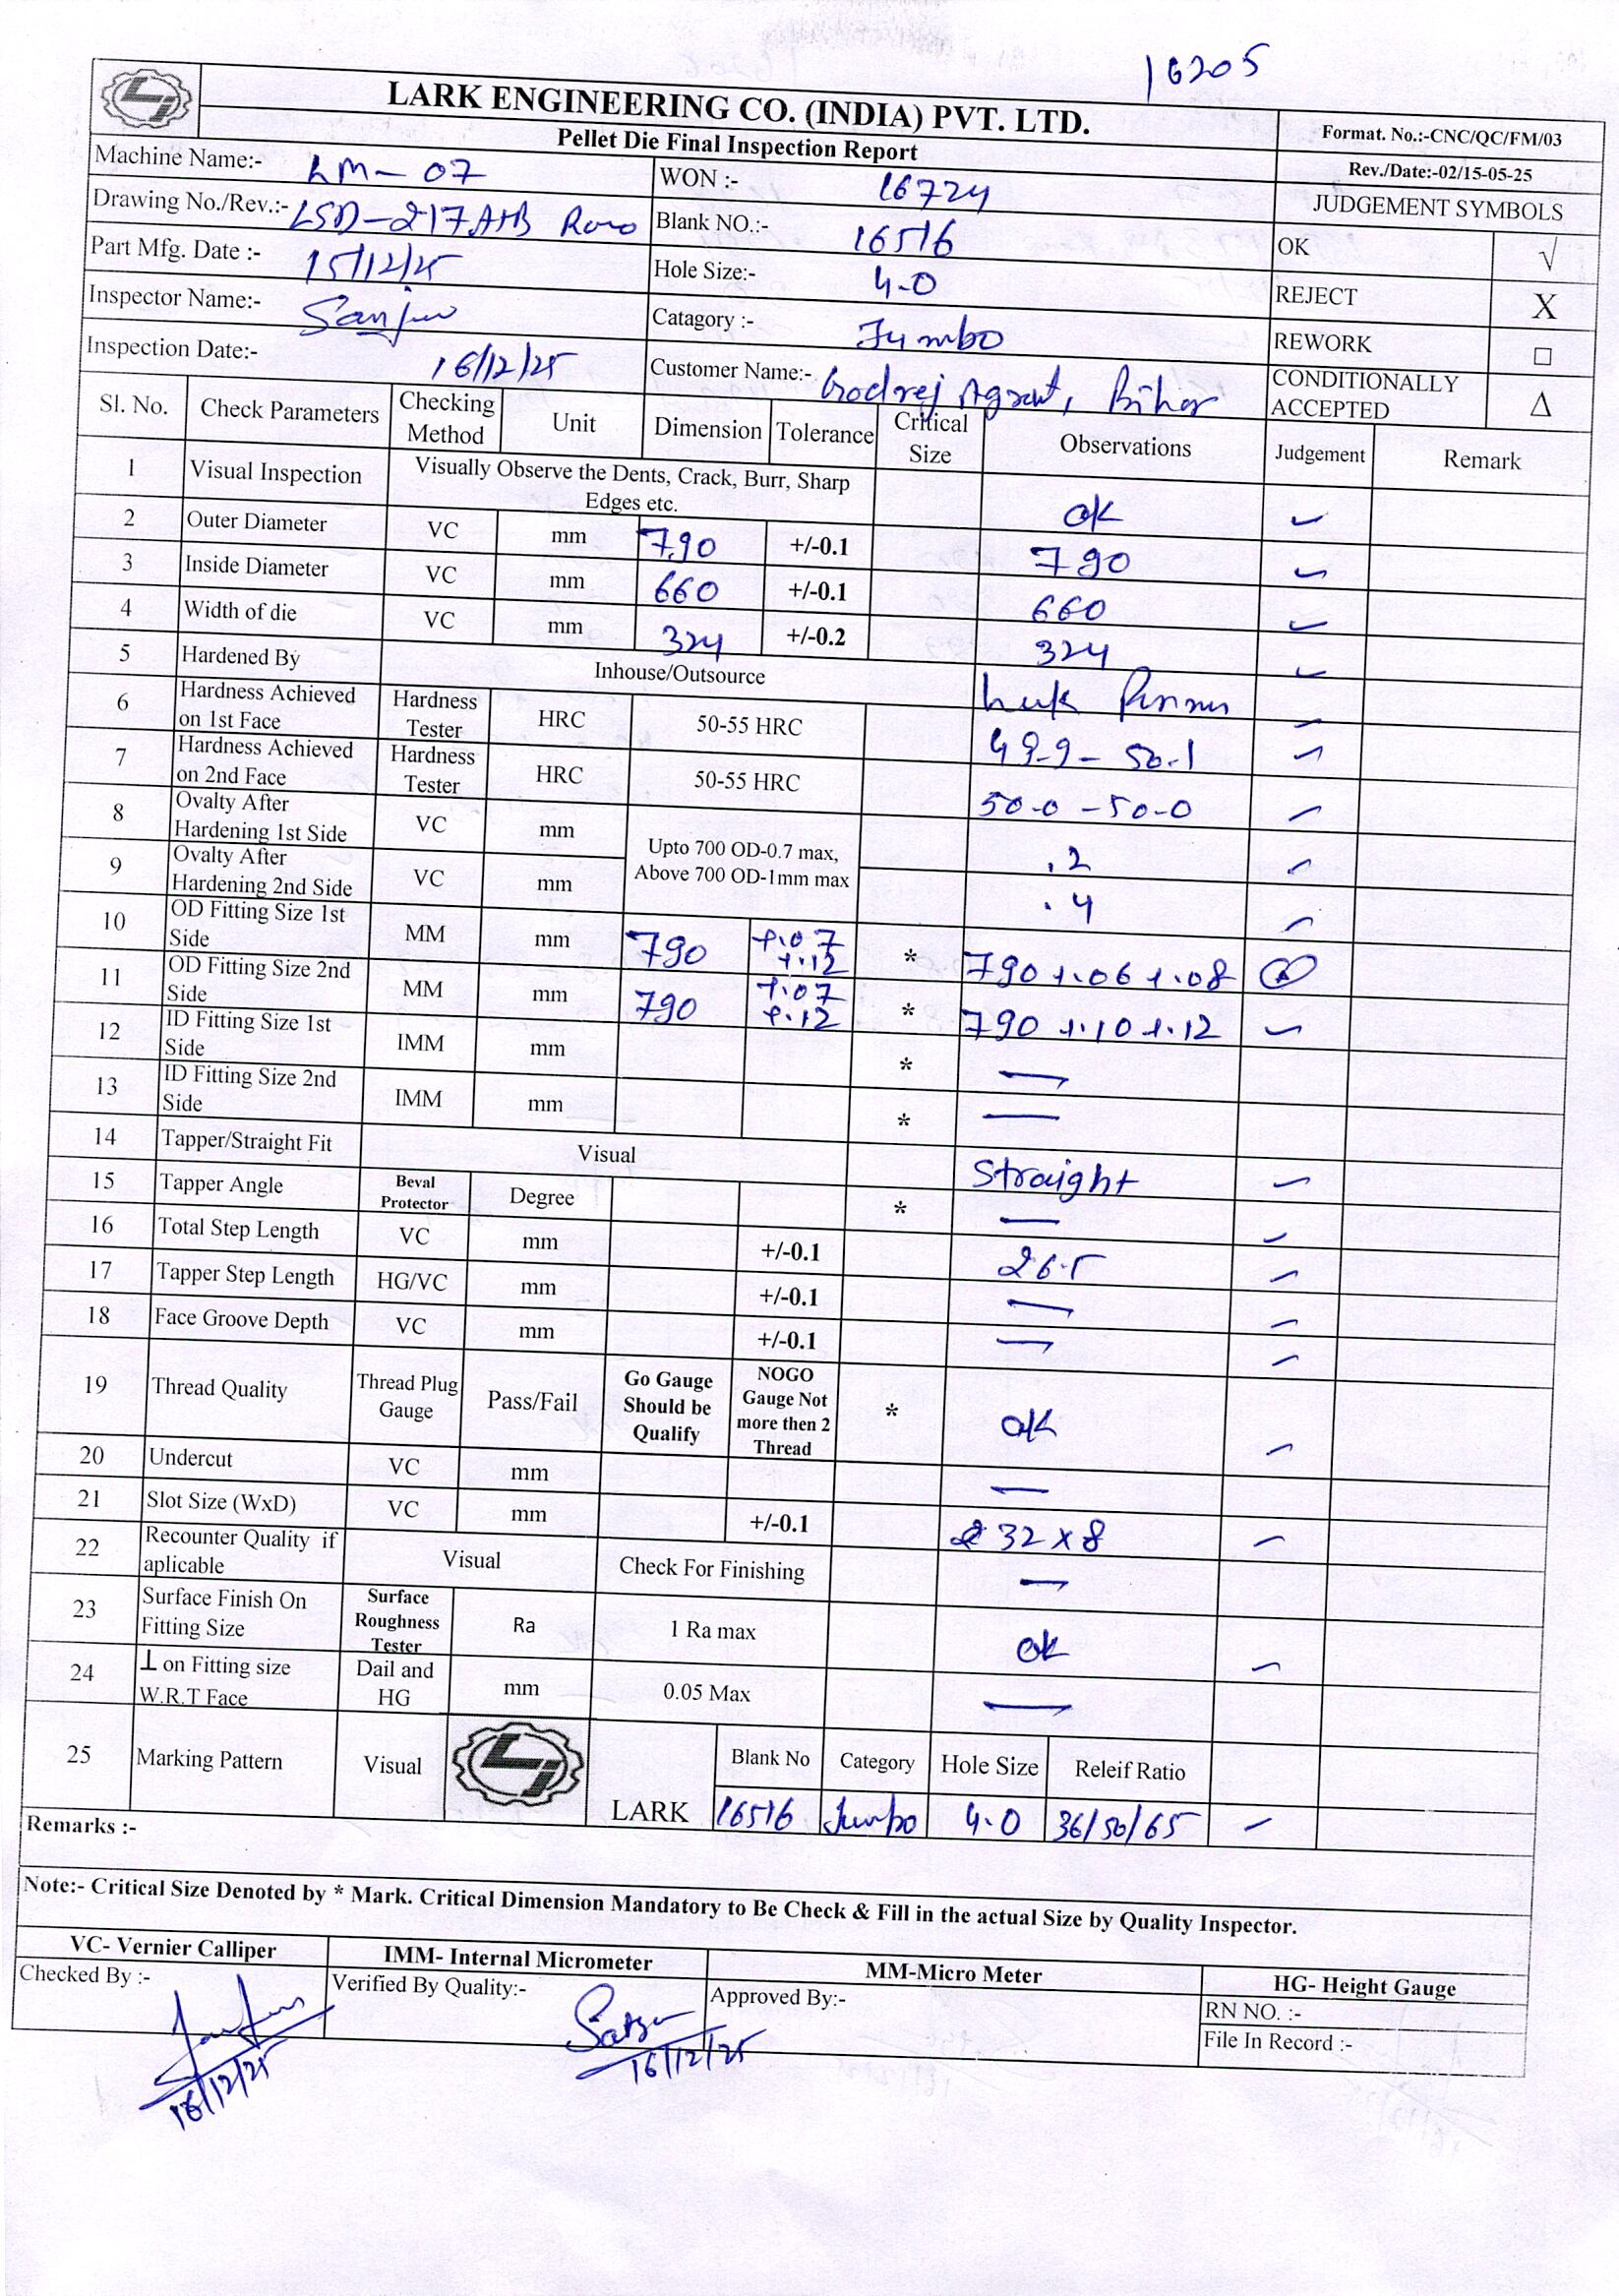 16205
LARK ENGINEERING CO. (INDIA) PVT. LTD.
Pellet Die Final Inspection Report
Format. No.:-CNC/QC/FM/03
Rev./Date:-02/15-05-25
Machine Name:- LM-07
WON :- 16724
JUDGEMENT SYMBOLS
Drawing No./Rev.:- LSD-217A+B
Blank NO.:- 16516
OK √
Part Mfg. Date :- 15/12/25
Hole Size:- 4.0
REJECT X
Inspector Name:-
Catagory :- Jumbo
REWORK □
Inspection Date:- 16/12/25
Customer Name:- Godrej Agrovet, Bihar
CONDITIONALLY ACCEPTED Δ
Sl. No. Check Parameters Checking Method Unit Dimension Tolerance Critical Size Observations Judgement Remark
1 Visual Inspection Visually Observe the Dents, Crack, Burr, Sharp Edges etc. ok ✓
2 Outer Diameter VC mm 790 +/-0.1 790 ✓
3 Inside Diameter VC mm 660 +/-0.1 660 ✓
4 Width of die VC mm 324 +/-0.2 324 ✓
5 Hardened By Inhouse/Outsource ✓
6 Hardness Achieved on 1st Face Hardness Tester HRC 50-55 HRC 49.9 - 50.1 ✓
7 Hardness Achieved on 2nd Face Hardness Tester HRC 50-55 HRC 50.0 - 50.0 ✓
8 Ovalty After Hardening 1st Side VC mm Upto 700 OD-0.7 max, Above 700 OD-1mm max .2 ✓
9 Ovalty After Hardening 2nd Side VC mm .4 ✓
10 OD Fitting Size 1st Side MM mm 790 +.07 +.12 * 790 +.06 +.08
11 OD Fitting Size 2nd Side MM mm 790 +.07 +.12 * 790 +.10 +.12 ✓
12 ID Fitting Size 1st Side IMM mm * —
13 ID Fitting Size 2nd Side IMM mm * —
14 Tapper/Straight Fit Visual Straight ✓
15 Tapper Angle Beval Protector Degree * — ✓
16 Total Step Length VC mm +/-0.1 26.5 ✓
17 Tapper Step Length HG/VC mm +/-0.1 — ✓
18 Face Groove Depth VC mm +/-0.1 — ✓
19 Thread Quality Thread Plug Gauge Pass/Fail Go Gauge Should be Qualify NOGO Gauge Not more then 2 Thread * ok ✓
20 Undercut VC mm —
21 Slot Size (WxD) VC mm +/-0.1 32 x 8 ✓
22 Recounter Quality if aplicable Visual Check For Finishing —
23 Surface Finish On Fitting Size Surface Roughness Tester Ra 1 Ra max ok ✓
24 ⊥ on Fitting size W.R.T Face Dail and HG mm 0.05 Max —
25 Marking Pattern Visual LARK Blank No Category Hole Size Releif Ratio
16516 Jumbo 4.0 36/50/65 ✓
Remarks :-
Note:- Critical Size Denoted by * Mark. Critical Dimension Mandatory to Be Check & Fill in the actual Size by Quality Inspector.
VC- Vernier Calliper IMM- Internal Micrometer MM-Micro Meter HG- Height Gauge
Checked By :- Verified By Quality:- Approved By:- RN NO. :-
File In Record :-
16/12/25 16/12/25